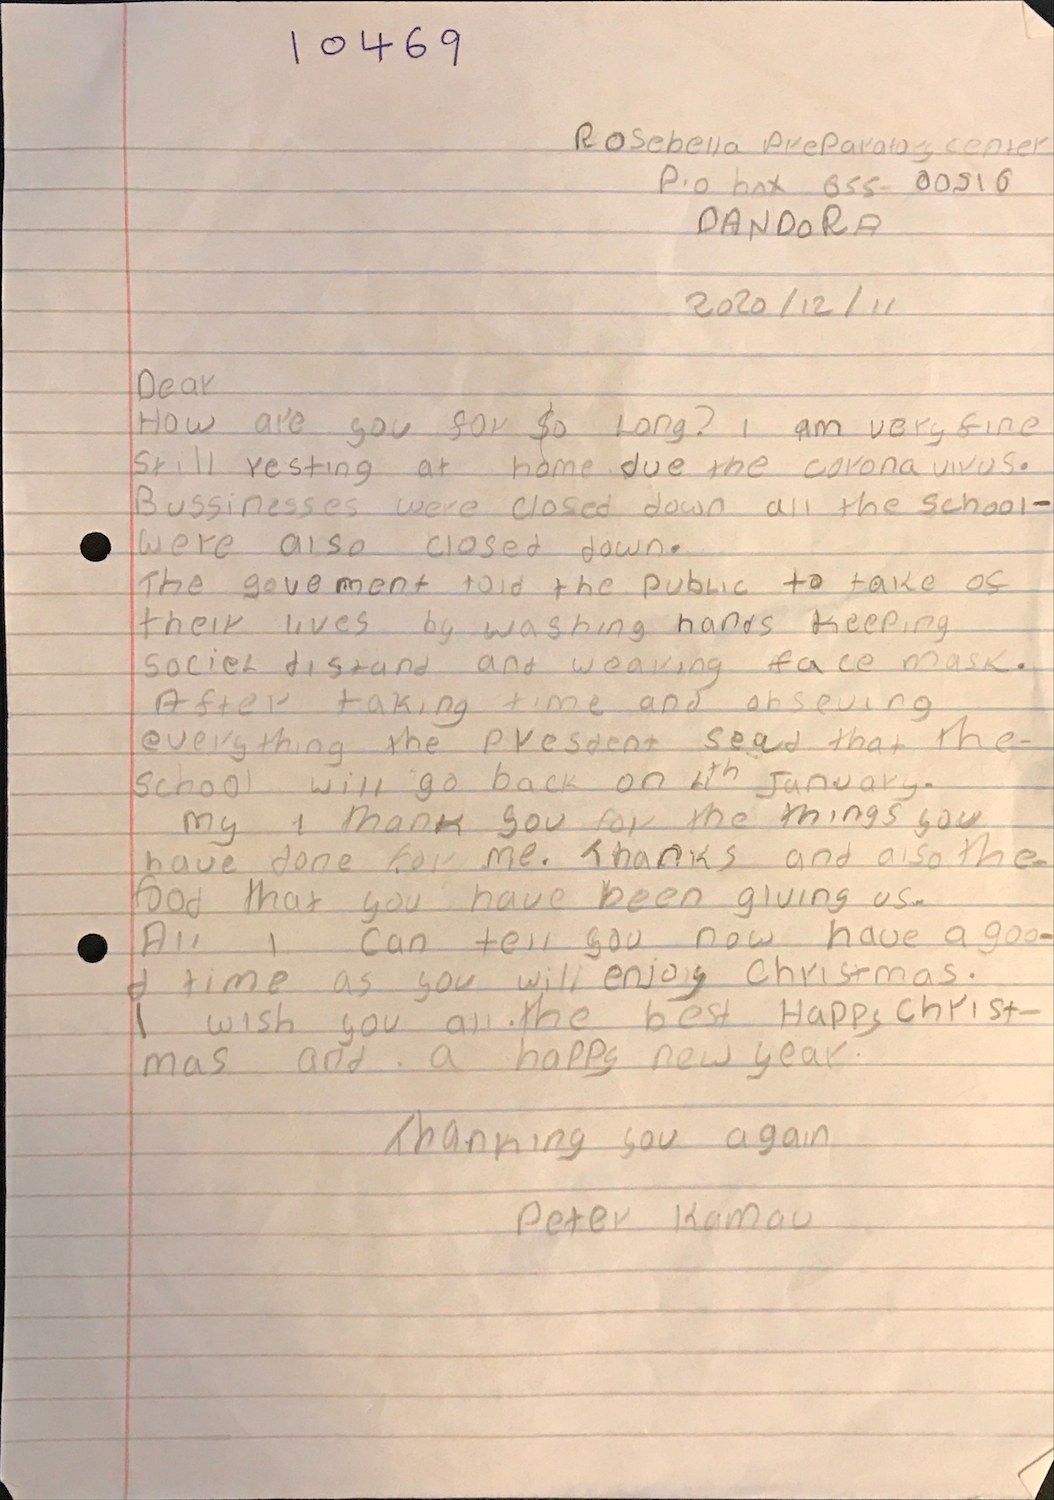 10469
Rosebella Preparatory center
P.o box 655- 00516
DANDORA
2020/12/11
Dear
How are you for so long? I am very fine
still resting at home due the corona virus.
Bussinesses were closed down all the school-
were also closed down.
The goverment told the public to take of
their lives by washing hands keeping
sociel distand and wearing face mask.
After taking time and obseving
everything the presdent sead that the-
school will go back on 4th January.
my I thank you for the things you
have done for me. Thanks and also the-
food that you have been giving us.
All I can tell you now have a goo-
d time as you will enjoy Christmas.
I wish you all.the best Happy Christ-
mas and . a happy new year.
Thanking you again
Peter Kamau